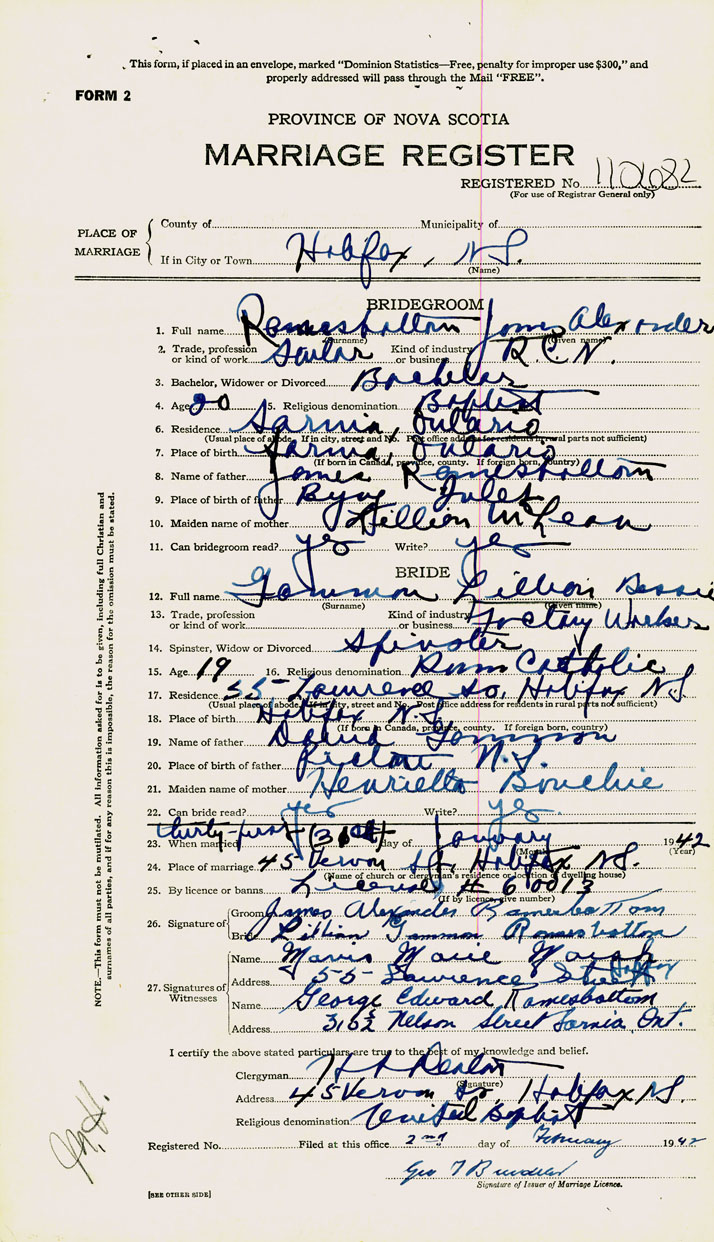 This form, if placed in an envelope, marked "Dominion Statistics—Free, penalty for improper use $300," and
properly addressed will pass through the Mail "FREE".
FORM 2
PROVINCE OF NOVA SCOTIA
MARRIAGE REGISTER
REGISTERED No. 110682
(For use of Registrar General only)
PLACE OF MARRIAGE
County of Municipality of
If in City or Town Halifax, N.S.
(Name)
BRIDEGROOM
1. Full name Ramesbottom James Alexander
(Surname) (Given name)
2. Trade, profession or kind of work Sailor Kind of industry or business R.C.N.
3. Bachelor, Widower or Divorced Bachelor
4. Age 20 5. Religious denomination Baptist
6. Residence Sarnia, Ontario
(Usual place of abode. If in city, street and No. Post office address for residents in rural parts not sufficient)
7. Place of birth Sarnia, Ontario
(If born in Canada, province, county. If foreign born, country)
8. Name of father James Ramesbottom
9. Place of birth of father
10. Maiden name of mother Lillian McLean
11. Can bridegroom read? yes Write? yes
BRIDE
12. Full name Gammon Lillian Bessie
(Surname) (Given name)
13. Trade, profession or kind of work Kind of industry or business Factory Worker
14. Spinster, Widow or Divorced Spinster
15. Age 19 16. Religious denomination Roman Catholic
17. Residence 55 Lawrence St., Halifax N.S
(Usual place of abode. If in city, street and No. Post office address for residents in rural parts not sufficient)
18. Place of birth Halifax N.S.
(If born in Canada, province, county. If foreign born, country)
19. Name of father David Gammon
20. Place of birth of father Pictou N.S.
21. Maiden name of mother Henrietta Bouchie
22. Can bride read? yes Write? yes
23. When married thirty-first (31st) day of January 1942
(Month) (Year)
24. Place of marriage 45 Vernon St., Halifax N.S.
(Name of church or clergyman's residence or location of dwelling house)
25. By licence or banns License # 60013
(If by licence, give number)
26. Signature of
Groom James Alexander Ramesbottom
Bride Lillian Gammon Ramesbottom
27. Signatures of Witnesses
Name Mavis Marie Walsh
Address 55 Lawrence Street Halifax
Name George Edward Ramesbottom
Address 316½ Nelson Street Sarnia, Ont.
I certify the above stated particulars are true to the best of my knowledge and belief.
Clergyman
(Signature)
Address 45 Vernon St. Halifax N.S.
Religious denomination United Baptist
Registered No. Filed at this office 2nd day of February 1942
Geo
Signature of Issuer of Marriage Licence.
[SEE OTHER SIDE]
NOTE.—This form must not be mutilated. All information asked for is to be given, including full Christian and
surnames of all parties, and if for any reason this is impossible, the reason for the omission must be stated.